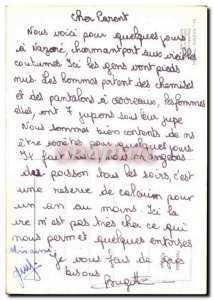 Cher Parent
Nous voici pour quelques jours
à Nazaré, charmant port aux vieilles
coutumes Ici les gens vont pieds
nus. Les hommes portent des chemises
et des pantalons à carreaux, les femmes
elles, ont 7 jupons sous leur jupe
Nous sommes bien contents de nous
être arrêtés pour quelques jours
Il fait très nous mangeons
du poisson tous les soirs, c'est
une reserve de calcium pour
un an au moins. Ici la
vie n'est pas très cher ce qui
nous permet quelques entorses
je vous fais de gros
bisous
Brigitte